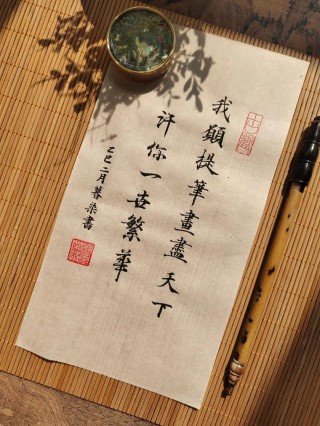 我願提筆畫盡天下
許你一世繁華
乙巳二月暮染書